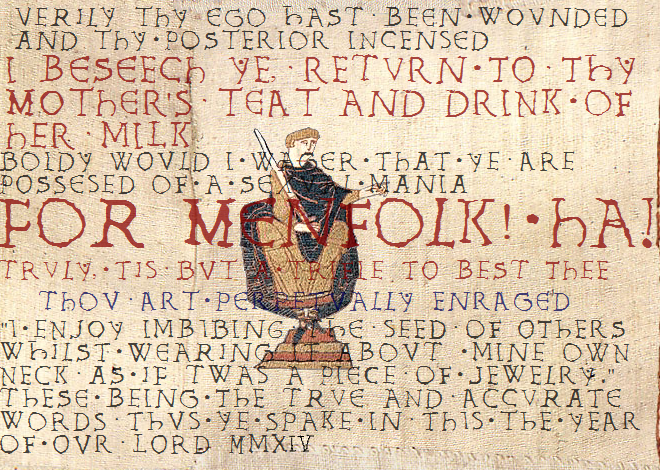 VERILY THY EGO HAST BEEN WOVNDED
AND THY·POSTERIOR INCENSED
I BESEECH YE, RETVRN·TO·THY
MOTHER'S TEAT AND DRINK·OF
HER·MILK
BOLDY WOVLD I·WAGER·THAT·YE ARE
POSSESED OF·A· MANIA
FOR MENFOLK!·HA!!
TRVLY,·TIS·BVT A·TRIFLE TO BEST THEE
THOV·ART·PERPETVALLY ENRAGED
"I·ENJOY IMBIBING THE SEED·OF OTHERS
WHILST·WEARING IT ABOVT·MINE OWN
NECK·AS·IF TWAS A PIECE OF·JEWELRY."
THESE·BEING·THE TRVE AND ACCVRATE
WORDS·THVS·YE·SPAKE·IN·THIS·THE·YEAR
OF·OVR LORD MMXIV